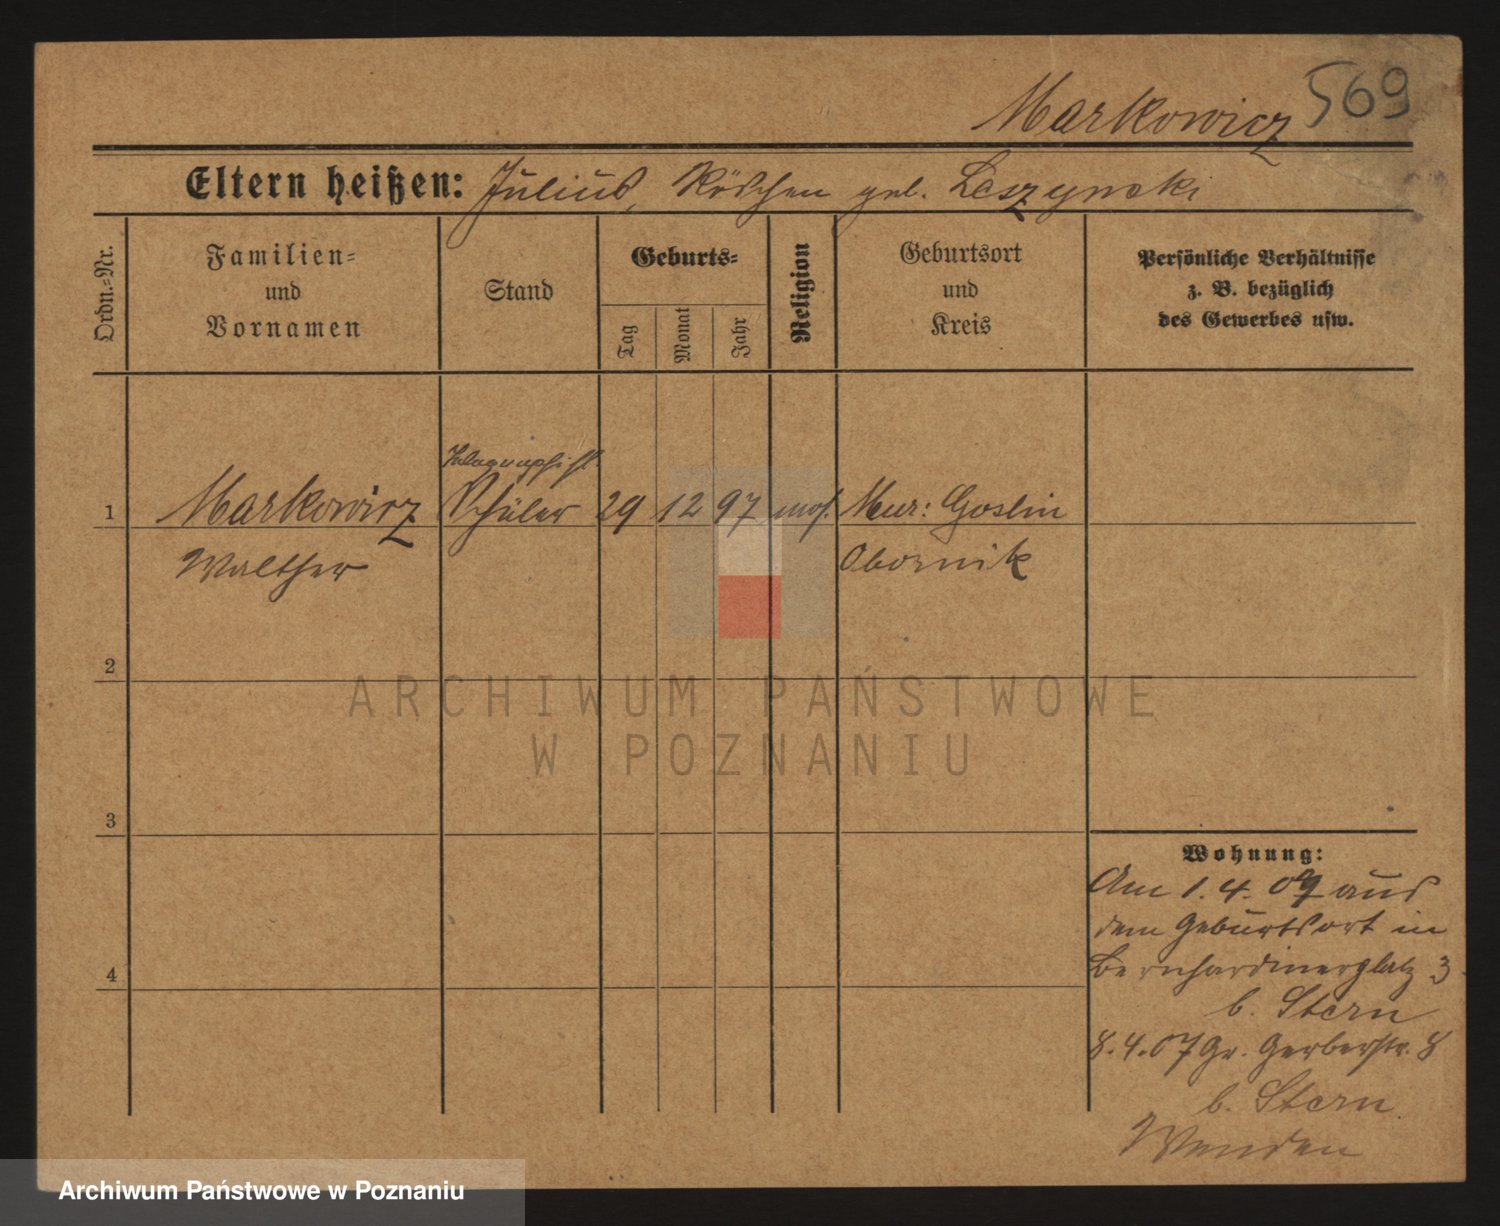 Markowicz 569
Eltern heißen: Julius, Röschen geb. Leszynski
Ordn.=Nr.
Familien=
und
Vornamen
Stand
Geburts=
Tag
Monat
Jahr
Religion
Geburtsort
und
Kreis
Persönliche Verhältnisse
z. B. bezüglich
des Gewerbes usw.
1 Markowicz Schüler 29 12 97 mos. Mur: Goslin
Walther Obornik
2
3
4
Wohnung:
Am 1. 4. 09 aus
dem Geburtsort in
Bernhardinerplatz 3
b. Stern
8. 4. 07 Gr. Gerberstr. 8
b. Stern.
Wenden
ARCHIWUM PAŃSTWOWE
W POZNANIU
Archiwum Państwowe w Poznaniu